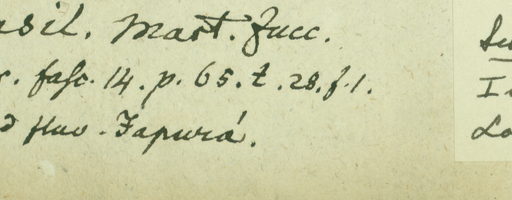 asil. Mart. Zucc.
c. fasc. 14. p. 65. t. 28. f. 1.
d fluv. Japurá.